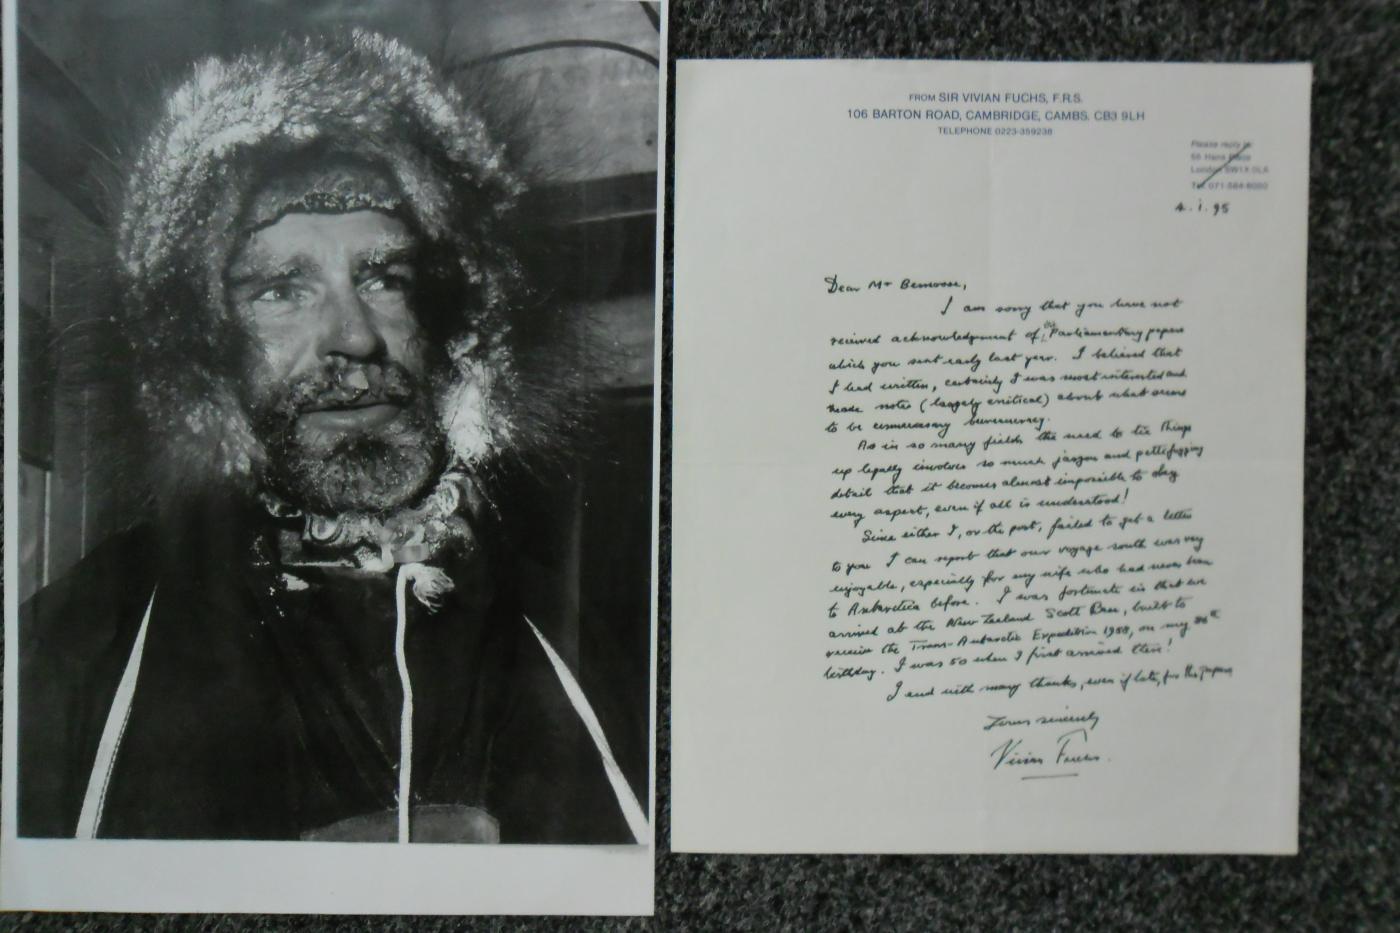 FROM SIR VIVIAN FUCHS, F.R.S.
106 BARTON ROAD, CAMBRIDGE, CAMBS. CB3 9LH
TELEPHONE 0223-359238
Please reply to:
London SW1X 0LA
4.1.95
Dear Mr
I am sorry that you have not
received acknowledgment of the Parliamentary papers
which you sent early last year. I believed that
I had written, certainly I was most interested and
made notes (largely critical) about what seems
to be unnecessary bureaucracy.
As in so many fields the need to tie things
up legally involves so much jargon and pettifogging
detail that it becomes almost impossible to obey
every aspect, even if all is understood!
Since either I, or the post, failed to get a letter
to you I can report that our voyage south was very
enjoyable, especially for my wife who had never been
to Antarctica before. I was fortunate in that we
arrived at the New Zealand Scott Base, built to
receive the Trans-Antarctic Expedition 1958, on my
birthday. I was 50 when I first arrived there!
I end with many thanks, even if late, for the papers
Yours sincerely
Vivian Fuchs.